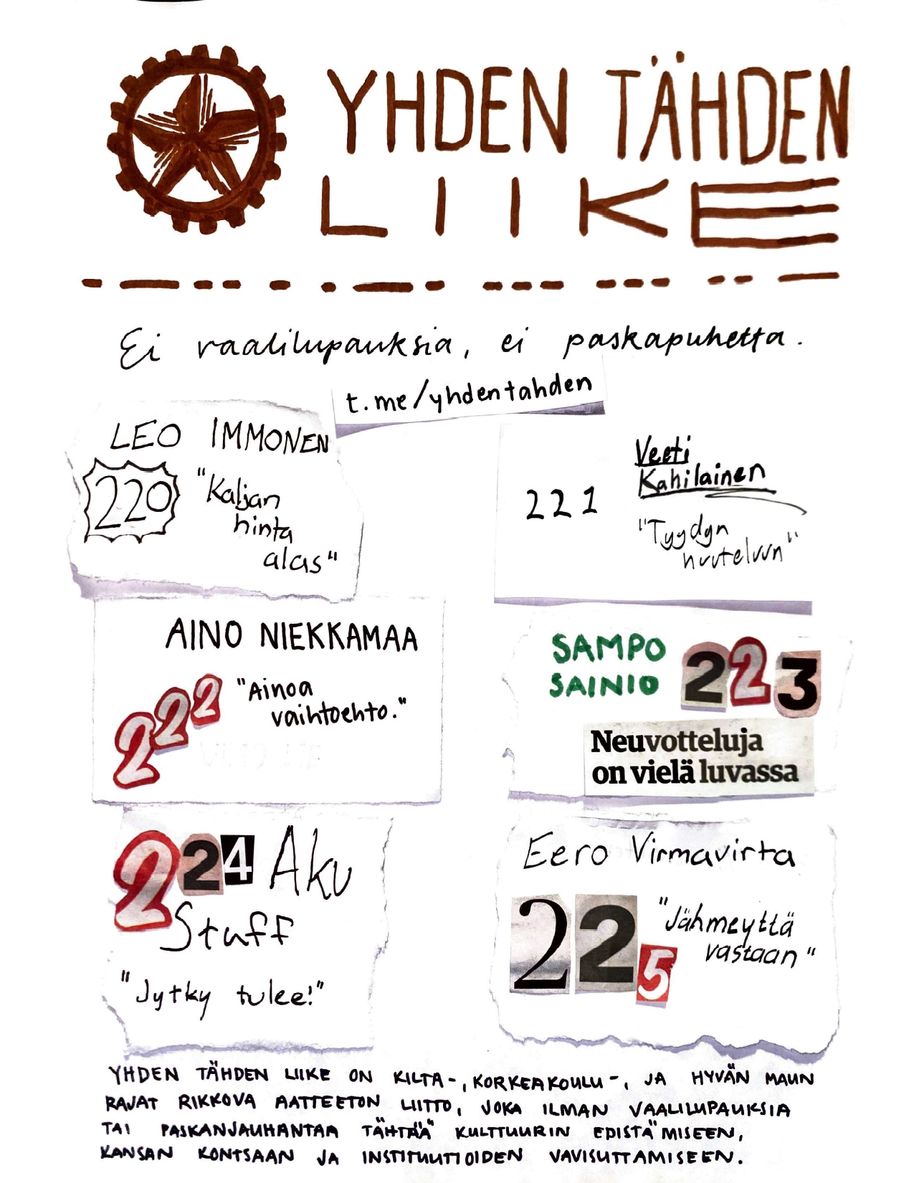 YHDEN TÄHDEN
LIIKE
Ei vaalilupauksia, ei paskapuhetta.
t.me/yhdentahden
LEO IMMONEN
220
"Kaljan
hinta
alas"
221
Veeti
Kahilainen
"Tyydyn
huuteluun"
AINO NIEKKAMAA
222
"Ainoa
vaihtoehto."
SAMPO
SAINIO
223
Neuvotteluja
on vielä luvassa
224 Aku
Stuff
"Jytky tulee!"
Eero Virmavirta
225
"Jähmeyttä
vastaan"
YHDEN TÄHDEN LIIKE ON KILTA-, KORKEAKOULU-, JA HYVÄN MAUN
RAJAT RIKKOVA AATTEETON LIITTO, JOKA ILMAN VAALILUPAUKSIA
TAI PASKANJAUHANTAA TÄHTÄÄ KULTTUURIN EDISTÄMISEEN,
KANSAN KONTSAAN JA INSTITUUTIOIDEN VAVISUTTAMISEEN.